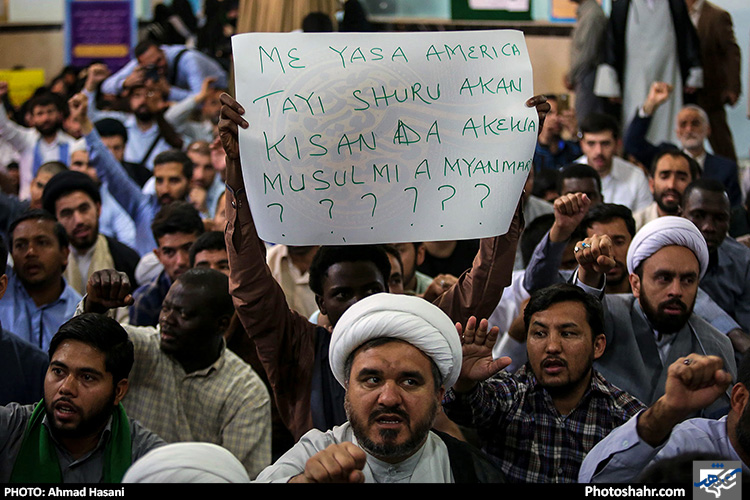 ME YASA AMERICA
TAYI SHURU AKAN
KISAN DA AKEWA
MUSULMI A MYANMAR
? ? ? ? ? ? ?
PHOTO: Ahmad Hasani
Photoshahr.com